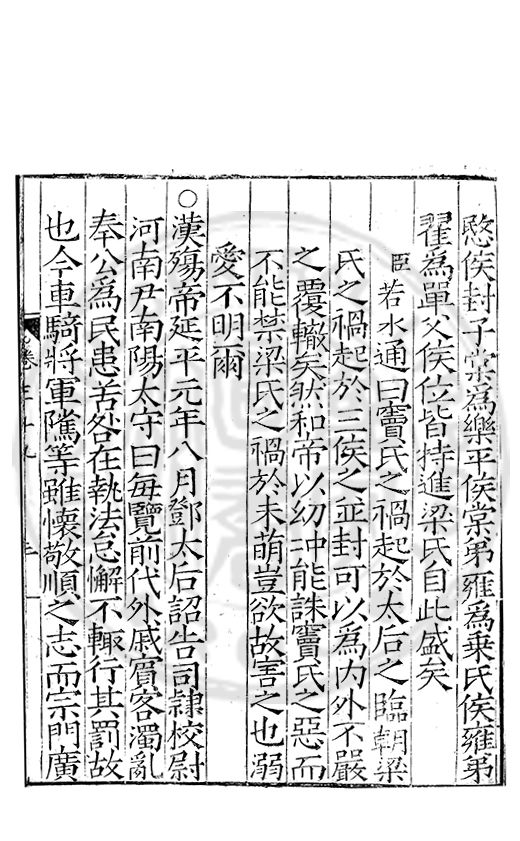 愍侯封子棠為樂平侯棠弟雍為乗氏侯雍弟
翟為單父侯位皆特進梁氏自此盛矣
臣若水通曰竇氏之禍起於太后之臨朝梁
氏之禍起於三侯之並封可以為内外不嚴
之覆轍矣然和帝以幼冲能誅竇氏之惡而
不能禁梁氏之禍於未萌豈欲故害之也溺
愛不明爾
○漢殤帝延平元年八月鄧太后詔告司隷校尉
河南尹南陽太守曰每覽前代外戚賓客濁亂
奉公為民患苦咎在執法怠懈不輙行其罰故
也今車騎將軍隲等雖懷敬順之志而宗門廣